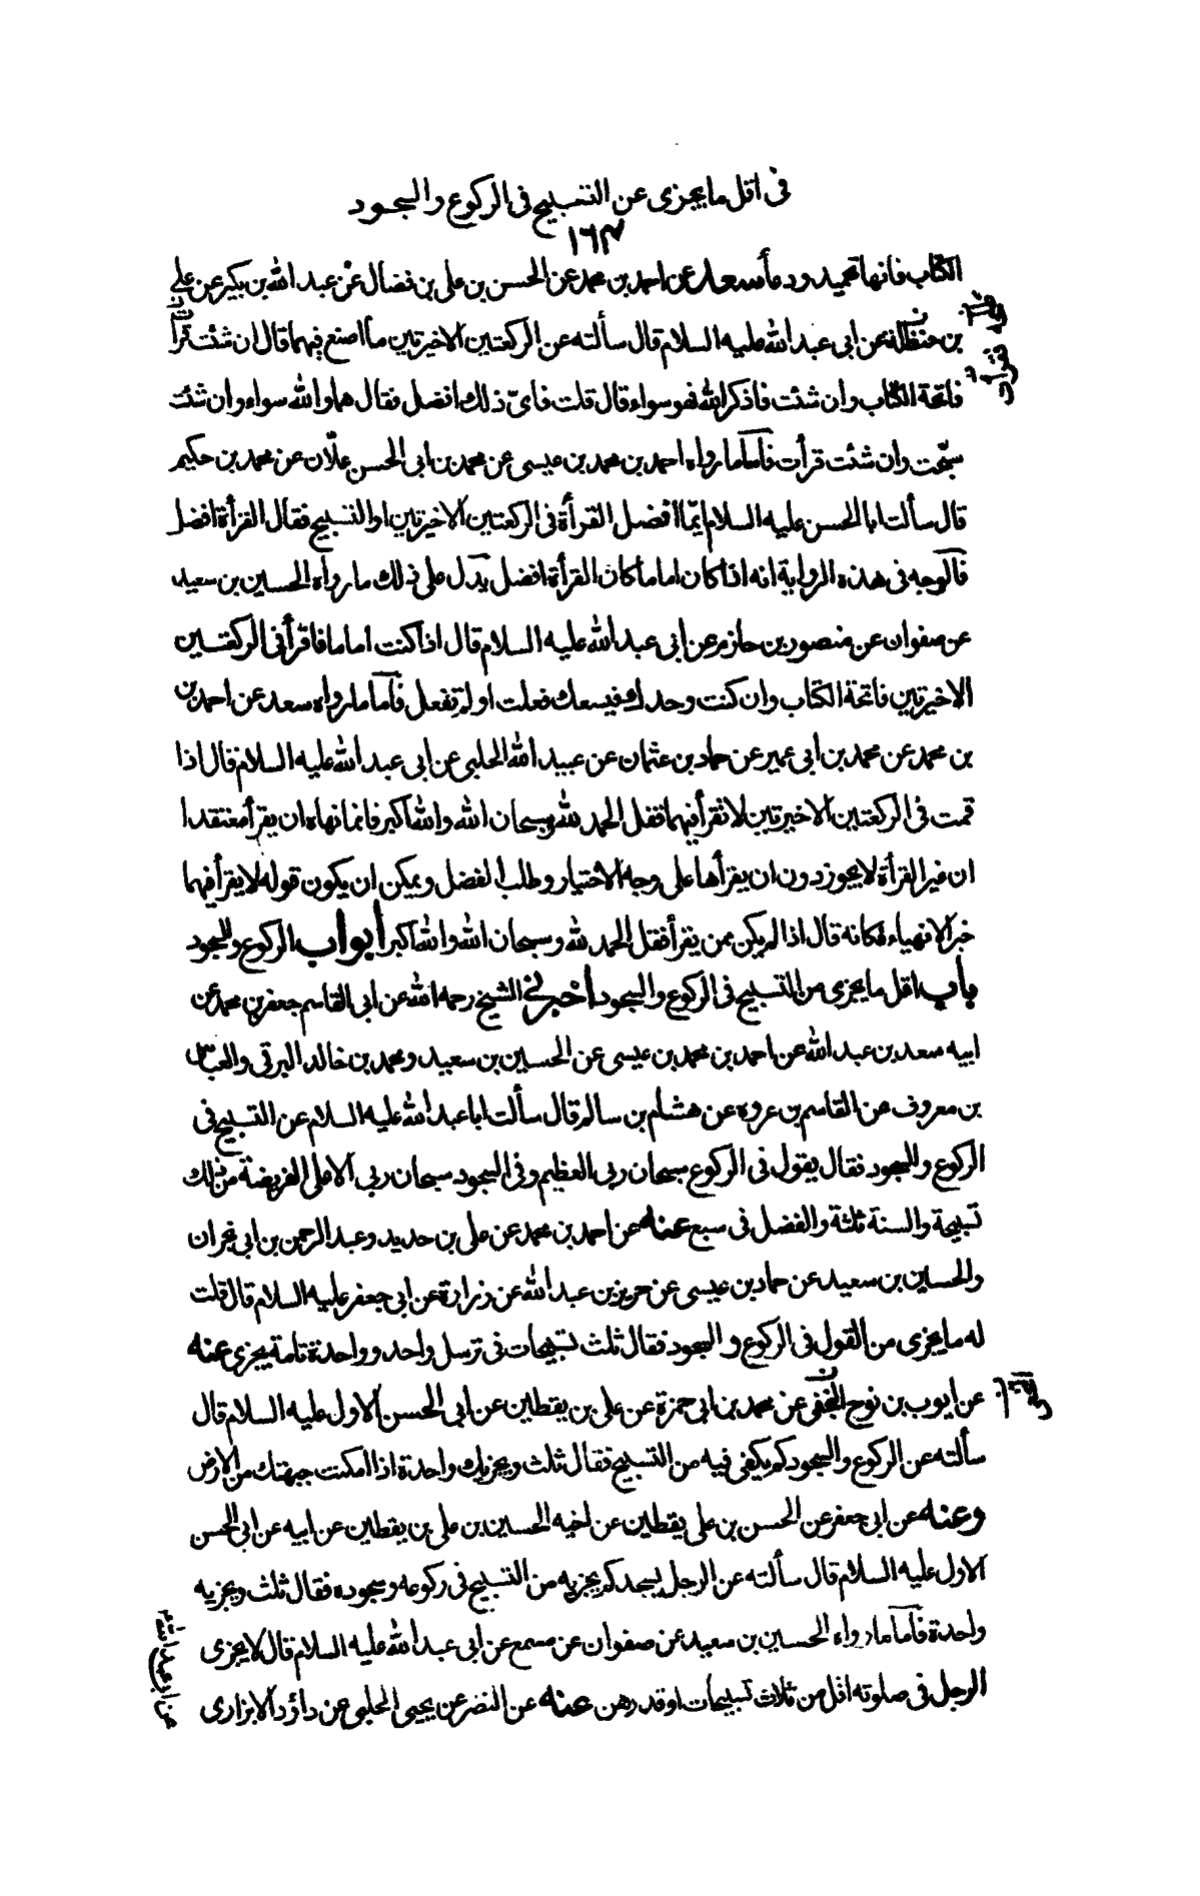 فى اقل ما يجزى عن التسبيح فى الركوع والسجود
١٦٣
الكتاب فانها تحميد ودعأ سعد عن احمد بن محمد عن الحسن بن على بن فضال عن عبد الله بن بكير عن على
بن حنظلة عن ابى عبد الله عليه السلام قال سألته عن الركعتين الاخيرتين ما اصنع فيهما قال ان شئت قرأ
فاتحة الكتاب وان شئت فاذكر الله فهو سواء قال قلت فاىّ ذلك افضل فقال هما والله سواء وان شئت
سبّحت وان شئت قرأت فأما ما رواه احمد بن محمد بن عيسى عن محمد بن ابى الحسن علّان عن محمد بن حكيم
قال سألت ابا الحسن عليه السلام ايّما افضل القرأة فى الركعتين الاخيرتين او التسبيح فقال القرأة افضل
فالوجه فى هذه الرواية انه اذا كان اماما كان القرأة افضل يدل على ذلك ما رواه الحسين بن سعيد
عن صفوان عن منصور بن حازم عن ابى عبد الله عليه السلام قال اذا كنت اماما فاقرأ فى الركعتين
الاخيرتين فاتحة الكتاب وان كنت وحدك فيسعك فعلت او لم تفعل فأما ما رواه سعد عن احمد بن
بن محمد عن محمد بن ابى عمير عن حماد بن عثمان عن عبيد الله الحلبى عن ابى عبد الله عليه السلام قال اذا
قمت فى الركعتين الاخيرتين لا تقرأ فيهما فقل الحمد لله وسبحان الله والله اكبر فانما نهاه ان يقرأ معتقدا
ان غير القرأة لا يجوز دون ان يقرأها على وجه الاختيار وطلب الفضل ويمكن ان يكون قوله لا يقرأ فيهما
خبرا لا نهيا فكانه قال اذا لم يكن ممن يقرأ فقل الحمد لله وسبحان الله والله اكبر أبواب الركوع والسجود
باب اقل ما يجزى من التسبيح فى الركوع والسجود اخبرنى الشيخ رحمه الله عن ابى القاسم جعفر بن محمد عن
ابيه سعد بن عبد الله عن احمد بن محمد بن عيسى عن الحسين بن سعيد ومحمد بن خالد البرقى والعباس
بن معروف عن القاسم بن عروه عن هشام بن سالم قال سألت ابا عبد الله عليه السلام عن التسبيح فى
الركوع والسجود فقال يقول فى الركوع سبحان ربى العظيم وفى السجود سبحان ربى الاعلى الفريضة من ذلك
تسبيحة والسنة ثلثة والفضل فى سبع عنه عن احمد بن محمد عن على بن حديد وعبد الرحمن بن ابى نجران
والحسين بن سعيد عن حماد بن عيسى عن حريز بن عبد الله عن زرارة عن ابى جعفر عليه السلام قال قلت
له ما يجزى من القول فى الركوع و السجود فقال ثلث تسبيحات فى ترسل واحد وواحدة تامة يجزى عنه
عن ايوب بن نوح النخفى عن محمد بن ابى حمزة عن على بن يقطين عن ابى الحسن الاول عليه السلام قال
سألته عن الركوع والسجود كم يكفى فيه من التسبيح فقال ثلث ويجزيك واحدة اذا امكنت جبهتك من الارض
وعنه عن ابى جعفر عن الحسن بن على يقطين عن اخيه الحسين بن على بن يقطين عن ابيه عن ابى الحسن
الاول عليه السلام قال سألته عن الرجل يسجد كم يجزيه من التسبيح فى ركوعه وسجوده فقال ثلث ويجزيه
واحدة فأما ما رواه الحسين بن سعيد عن صفوان عن مسمع عن ابى عبد الله عليه السلام قال لا يجزى
الرجل فى صلوته اقل من ثلاث تسبيحات او قدرهن عنه عن النضر عن يحيى الحلبى عن داؤد الابزارى